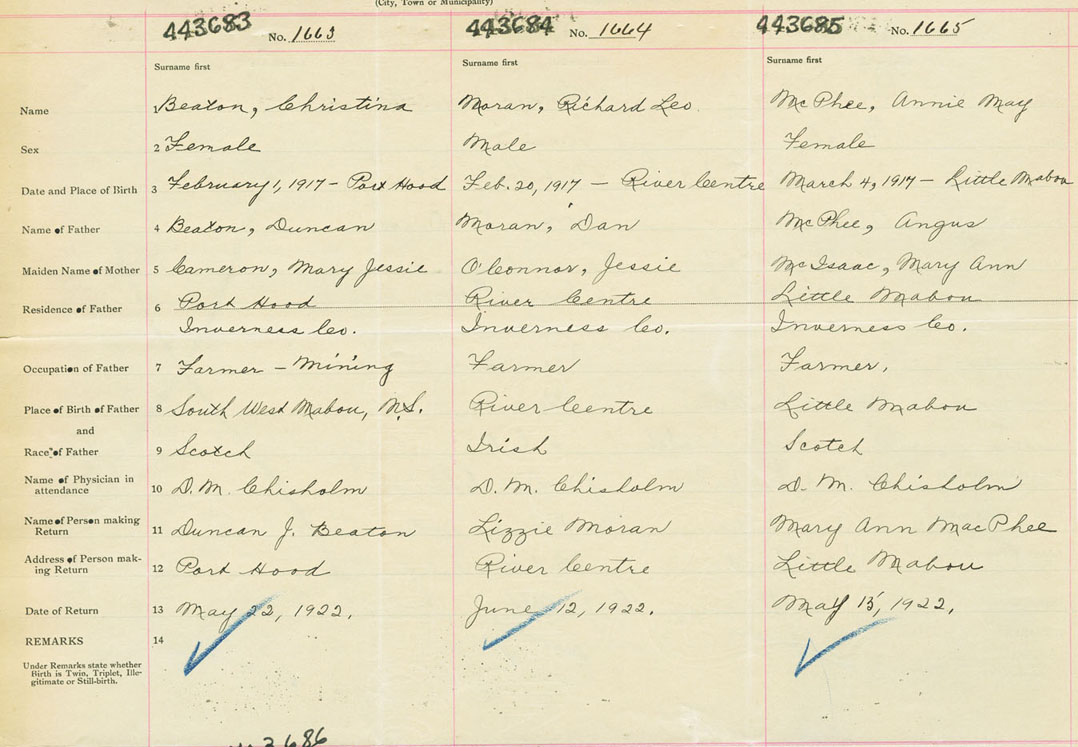 (City, Town or Municipality)
443683 No. 1663 443684 No. 1664 443685 No. 1665
Surname first Surname first Surname first
Name 1 Beaton, Christina Moran, Richard Leo. McPhee, Annie May
Sex 2 Female Male Female
Date and Place of Birth 3 February 1, 1917 - Port Hood Feb. 20, 1917 - River Centre March 4, 1917 - Little Mabou
Name of Father 4 Beaton, Duncan Moran, Dan McPhee, Angus
Maiden Name of Mother 5 Cameron, Mary Jessie O'Connor, Jessie McIsaac, Mary Ann
Residence of Father 6 Port Hood River Centre Little Mabou
Inverness Co. Inverness Co. Inverness Co.
Occupation of Father 7 Farmer - Mining Farmer Farmer.
Place of Birth of Father 8 South West Mabou, N.S. River Centre Little Mabou
and
Race of Father 9 Scotch Irish Scotch
Name of Physician in
attendance 10 D. M. Chisholm D. M. Chisholm D. M. Chisholm
Name of Person making
Return 11 Duncan J. Beaton Lizzie Moran Mary Ann MacPhee
Address of Person mak-
ing Return 12 Port Hood River Centre Little Mabou
Date of Return 13 May 22, 1922. June 12, 1922. May 15, 1922.
REMARKS 14
Under Remarks state whether
Birth is Twin, Triplet, Ille-
gitimate or Still-birth.